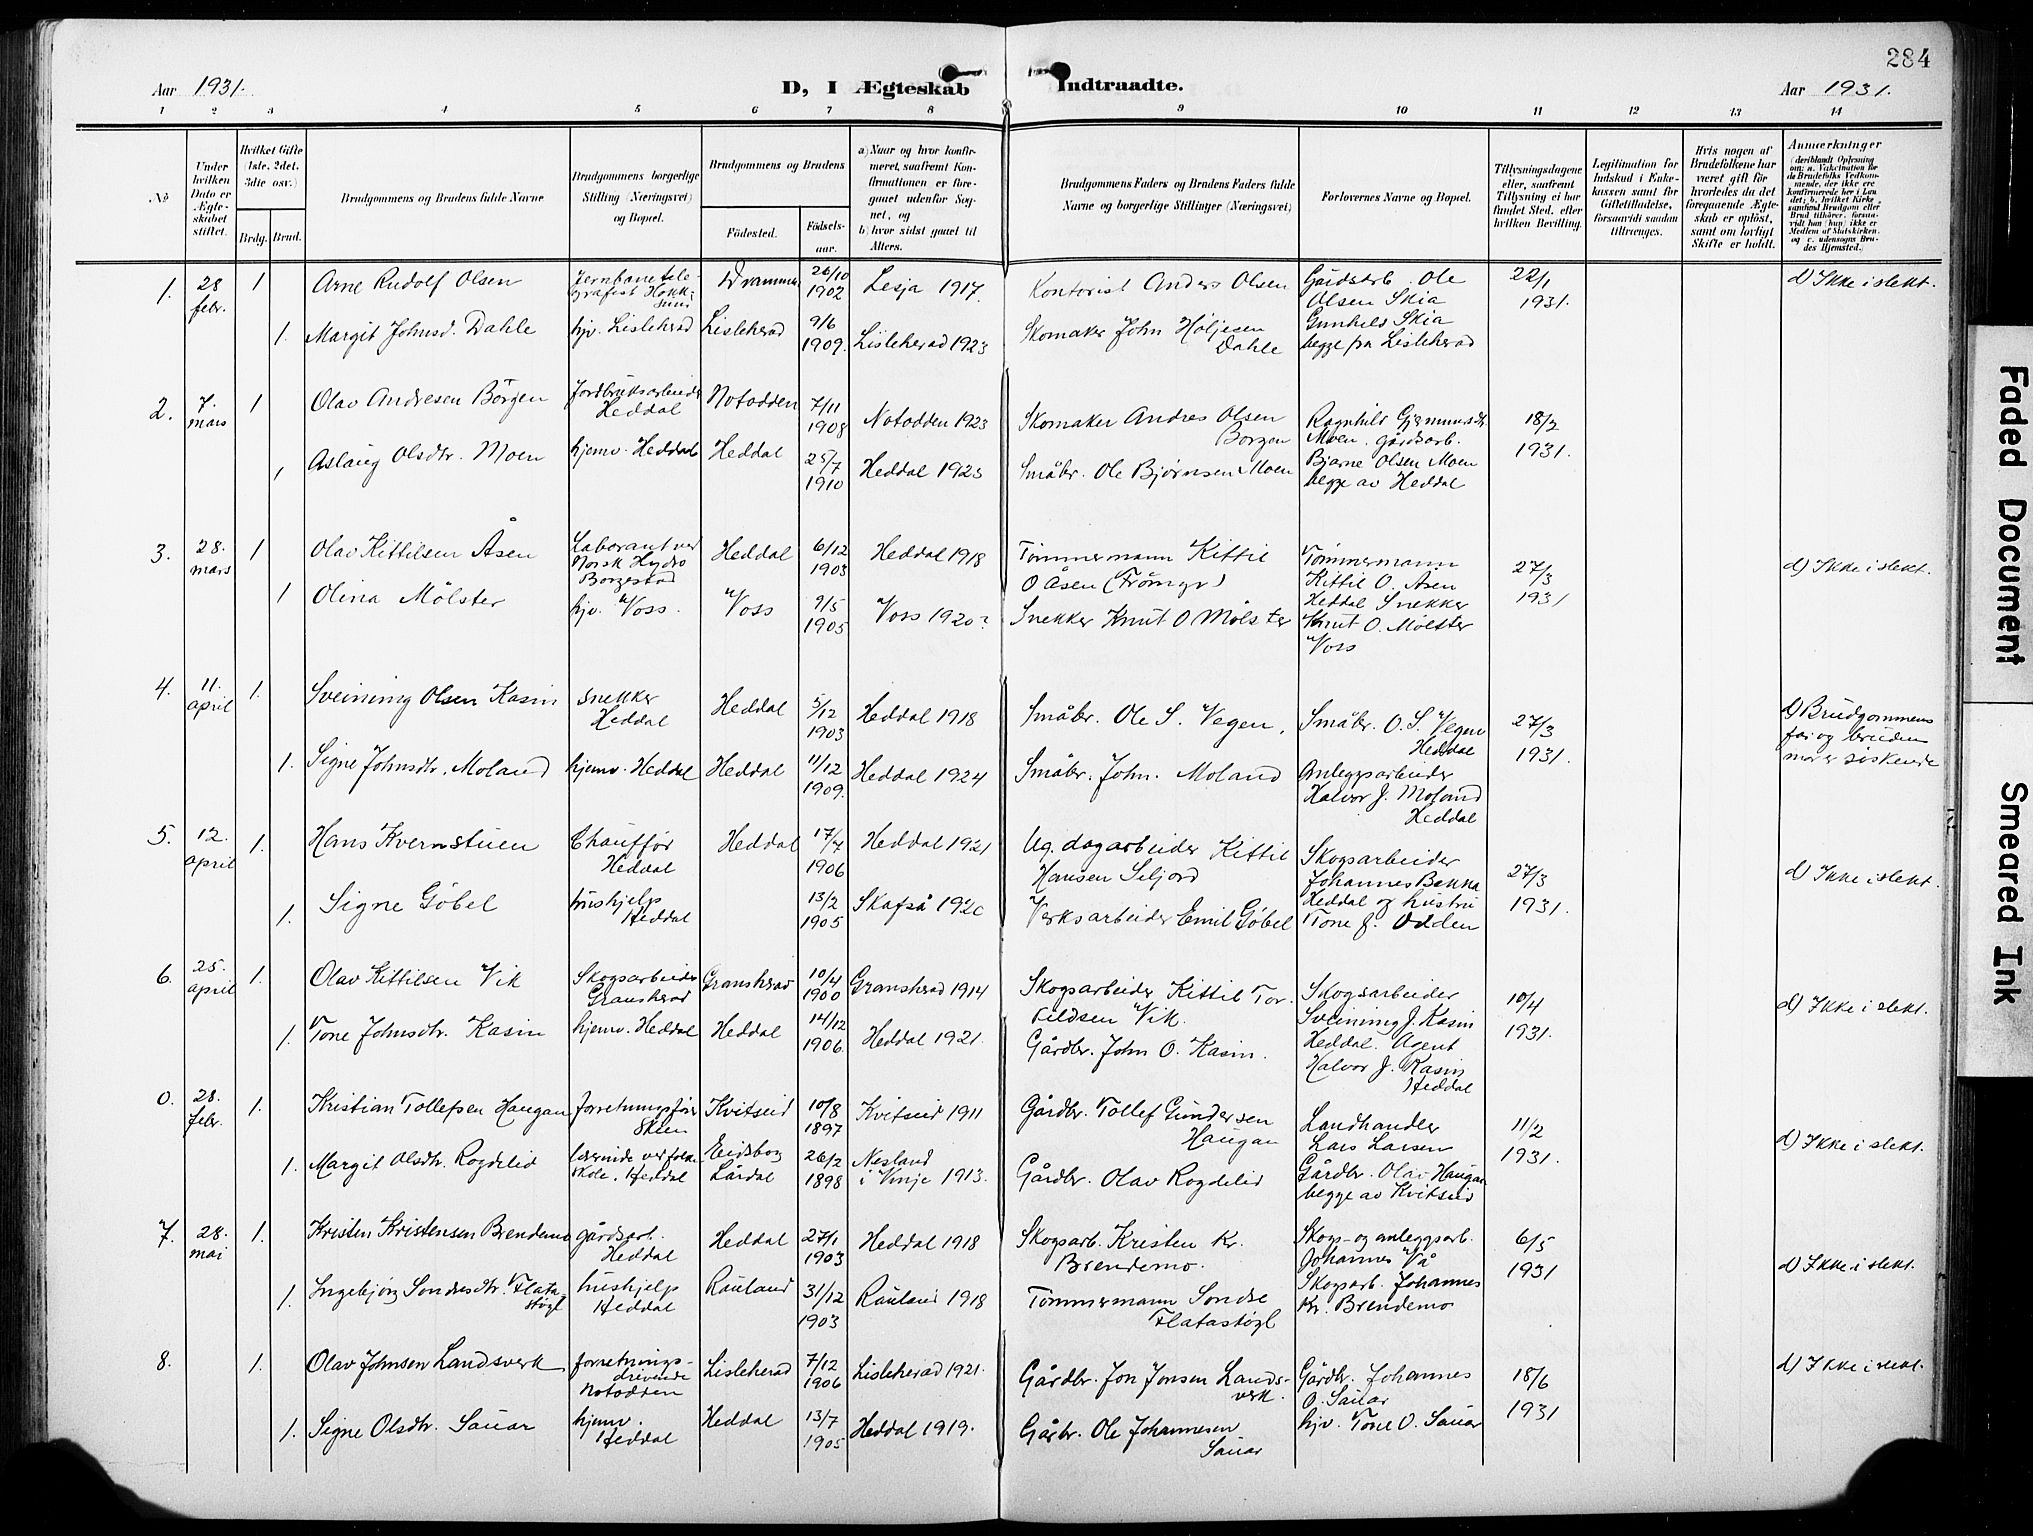 284
Aar 1931.
D, I Ægteskab Indtraadte.
Aar 1931.
1 2 3 4 5 6 7 8 9 10 11 12 13 14
No
Under hvilken Dato er Ægteskabet stiftet.
Hvilket Gifte (1ste, 2det, 3die osv.)
Brdg. Brud.
Brudgommens og Brudens fulde Navne
Brudgommens borgerlige Stilling (Næringsvei) og Bopæl.
Brudgommens og Brudens
Fødested.
Fødselsaar.
a) Naar og hvor konfirmeret, saafremt Konfirmationen er foregaaet udenfor Sognet, og
b) hvor sidst gaaet til Alters.
Brudgommens Faders og Brudens Faders fulde Navne og borgerlige Stillinger (Næringsvei)
Forlovernes Navne og Bopæl.
Tillysningsdagene eller, saafremt Tillysning ei har fundet Sted, efter hvilken Bevilling.
Legitimation for Indskud i Enkekassen samt for Giftetilladelse, forsaavidt saadan tiltrænges.
Hvis nogen af Brudefolkene har været gift før hvorledes da det foregaaende Ægteskab er opløst, samt om lovligt Skifte er holdt.
Anmærkninger
1. 28 febr. 1 Arne Rudolf Olsen Jernbanetelegrafist Hokksund Drammen 26/10 1902 Lesja 1917. Kontorist Anders Olsen Gårdsarb. Ole Olsen Skia 22/1 1931. d) Ikke i slekt.
1. Margit Johnsd. Dahle hjv. Lisleherad Lisleherad 9/6 1909. Lisleherad 1923 Skomaker John Høljesen Dahle Gunhild Skia begge fra Lisleherad
2. 7. mars 1 Olav Andresen Börgen Jordbruksarbeider Heddal Notodden 7/11 1908 Notodden 1923 Skomaker Andres Olsen Borgen Ragnhild Gjermundsdtr. Moen. gårdsarb. 18/2 1931.
1 Aslaug Olsdtr. Moen hjemv. Heddal Heddal 25/7 1910 Heddal 1925 Småbr. Ole Bjørnsen Moen Bjarne Olsen Moen begge av Heddal
3. 28. mars 1 Olav Kittilsen Åsen Laborant ved Norsk Hydro Borgestad Heddal 6/12 1903 Heddal 1918 Tømmermann Kittil O Åsen Tømmermann Kittil O. Åsen Heddal 27/3 1931 d) Ikke i slekt.
1 Olina Mölster hjv. Voss. Voss 9/5 1905 Voss 1920? Snekker Knut O Mölster Snekker Knut O. Mölster Voss
4. 11. april 1. Sveinung Olsen Kasin Snekker Heddal Heddal 5/12 1903 Heddal 1918 Småbr. Ole S. Vegen. Småbr. O. S. Vegen Heddal 27/3 1931. d) Brudgommens far og bruden mor er søskende
1. Signe Johnsdtr. Moland hjemv. Heddal Heddal 11/12 1909. Heddal 1924 Småbr. John. Moland Anleggsarbeider Halvor J. Moland Heddal
5. 12. april 1. Hans Kvernstuen Chauffør Heddal Heddal 17/7 1906 Heddal 1921 Ug. dagarbeider Kittil Hansen Seljord Skogsarbeider Johannes Bakka Heddal og hustru 27/3 1931. d) Ikke i slekt.
1. Signe Göbel hushjelp Heddal 13/2 1905 Skafså 1920 Verksarbeider Emil Göbel Tone J. Odden
6. 25. april 1. Olav Kittilsen Vik Skogsarbeider Gransherad Gransherad 10/4 1900 Gransherad 1914 Skogsarbeider Kittil Torkildsen Vik. Skogsarbeider Sveinung J. Kasin Heddal. 10/4 1931. d) Ikke i slekt.
1. Tone Johnsdtr. Kasin hjemv. Heddal Heddal 14/12 1906. Heddal 1921. Gårdbr. John O. Kasin. Agent Halvor J. Kasin Heddal
0. 28. febr. 1. Kristian Tollefsen Haugan forretningsfører Skien Kvitseid 10/8 1897 Kvitseid 1911 Gårdbr. Tollef Gundersen Haugan Landhandler Lars Larsen 11/2 1931. d) Ikke i slekt.
1. Margit Olsdtr. Rogdelid lærerinde ved folkeskole. Heddal Eidsborg Lårdal 26/2 1898 Nesland i Vinje 1913. Gårdbr. Olav Rogdelid Gårdbr. Olav Haugan begge av Kvitseid
7. 28. mai 1. Kristen Kristensen Brendemo gårdsarb. Heddal Heddal 27/1 1903 Heddal 1918 Skogsarb. Kristen Kr. Brendemo. Skogs- og anleggsarb. Johannes Vå 6/5 1931 d) Ikke i slekt.
1. Ingebjörg Sondresdtr. Flatastøyl hushjelp Heddal Rauland 31/12 1903 Rauland 1918 Tømmermann Sondre Flatastøyl Skogsarb. Johannes Kr. Brendemo
8. 1. Olav Johnsen Landsverk forretningsdrivende Notodden Lisleherad 7/12 1906 Lisleherad 1921. Gårdbr. Jon Jonsen Landsverk. Gårdbr. Johannes O. Sauar 18/6 1931 d) Ikke i slekt.
1. Signe Olsdtr. Sauar hjemv. Heddal Heddal 13/7 1905 Heddal 1919. Gårbr. Ole Johannesen Sauar hjv. Tone O. Sauar
Faded Document
Smeared Ink